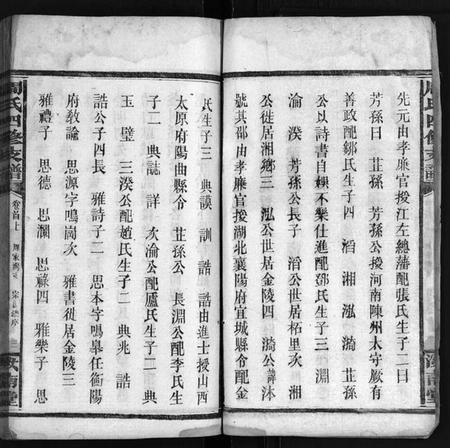 周氏四修支譜
先元由孝廉官授江左總藩配張氏生子二曰
芳孫曰苴孫 芳孫公授河南陳州太守厥有
善政配鄒氏生子四 湝 湘 泓 漪 苴孫
公以詩書自娛不樂仕進配鄧氏生子三 淵
淪 渙 芳孫公長子 湝公世居栢里次 湘
公徙居湘鄉三 泓公世居金陵四 漪公諱沐
號其邵由孝廉官授湖北襄陽府宜城縣令配金
氏生子三 典謨 訓 誥 誥由進士授山西
太原府陽曲縣令 苴孫公長 淵公配李氏生
子二 典 誌 詳 次淪公配盧氏生子二 典
玉 璧 三渙公配趙氏生子二 典兆 誥
誥公子四長 雅詩子二 思本字鳴皋任衡陽
府教諭 思源字鳴岡次 雅書徙居金陵三
雅禮子 思德 思瀾 思祿四 雅樂子 思
周氏四修支譜
卷首上
汝南堂